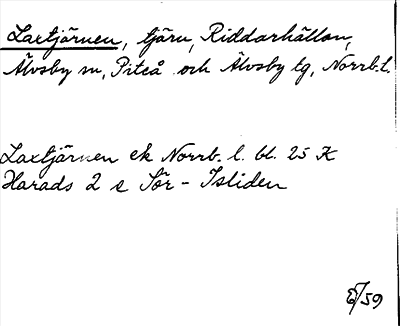 Laxtjärnen, tjärn, Riddarhällan,
Älvsby sn, Piteå och Älvsby tg, Norrb.l.
Laxtjärnen ek Norrb. l. bl. 25 K
Harads 2 e Sör-Isliden
E/59